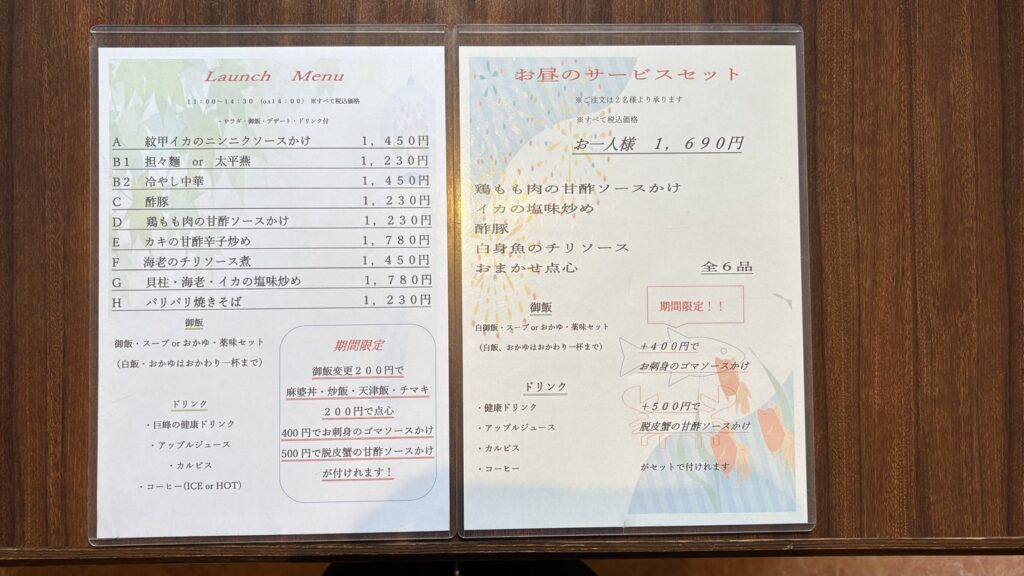 Launch Menu
11:00~14:30 (o.s14:00) ※すべて税込価格
・サラダ・御飯・デザート・ドリンク付
A 紋甲イカのニンニクソースかけ 1,450円
B1 担々麺 or 太平燕 1,230円
B2 冷やし中華 1,450円
C 酢豚 1,230円
D 鶏もも肉の甘酢ソースかけ 1,230円
E カキの甘酢辛子炒め 1,780円
F 海老のチリソース煮 1,450円
G 貝柱・海老・イカの塩味炒め 1,780円
H パリパリ焼きそば 1,230円
御飯
御飯・スープ or おかゆ・薬味セット
(白飯・おかゆはおかわり一杯まで)
ドリンク
・巨峰の健康ドリンク
・アップルジュース
・カルピス
・コーヒー(ICE or HOT)
期間限定
御飯変更200円で
麻婆丼・炒飯・天津飯・チマキ
200円で点心
400円でお刺身のゴマソースかけ
500円で脱皮蟹の甘酢ソースかけ
が付けれます!
お昼のサービスセット
※ご注文は2名様より承ります
※すべて税込価格
お一人様 1,690円
鶏もも肉の甘酢ソースかけ
イカの塩味炒め
酢豚
白身魚のチリソース
おまかせ点心 全6品
御飯
白御飯・スープ or おかゆ・薬味セット
(白飯、おかゆはおかわり一杯まで)
ドリンク
・健康ドリンク
・アップルジュース
・カルピス
・コーヒー
期間限定!!
+400円で
お刺身のゴマソースかけ
+500円で
脱皮蟹の甘酢ソースかけ
がセットで付けれます